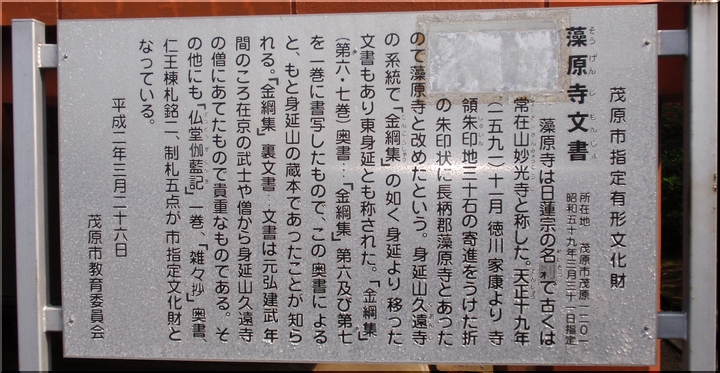 茂原市指定有形文化財
藻原寺文書
そうげんじもんじょ
所在地 茂原市茂原一二〇一
昭和五十九年三月三十一日指定
藻原寺は日蓮宗の名刹で古くは
常在山妙光寺と称した。天正十九年
(一五九一)十一月徳川家康より寺
領朱印地三十石の寄進をうけた折
の朱印状に長柄郡藻原寺とあった
ので藻原寺と改めたという。身延山久遠寺
の系統で「金綱集」の如く身延より移った
文書もあり東身延とも称された。「金綱集」
(第六・七巻)奥書…「金綱集」第六及び第七
を一巻に書写したもので、この奥書による
と、もと身延山の蔵本であったことが知ら
れる。「金綱集」裏文書…文書は元弘建武年
間のころ在京の武士や僧から身延山久遠寺
の僧にあてたもので貴重なものである。そ
の他にも「仏堂伽藍記」一巻、「雑々抄」奥書、
仁王棟札銘二、制札五点が市指定文化財と
なっている。
平成二年三月二十六日
茂原市教育委員会